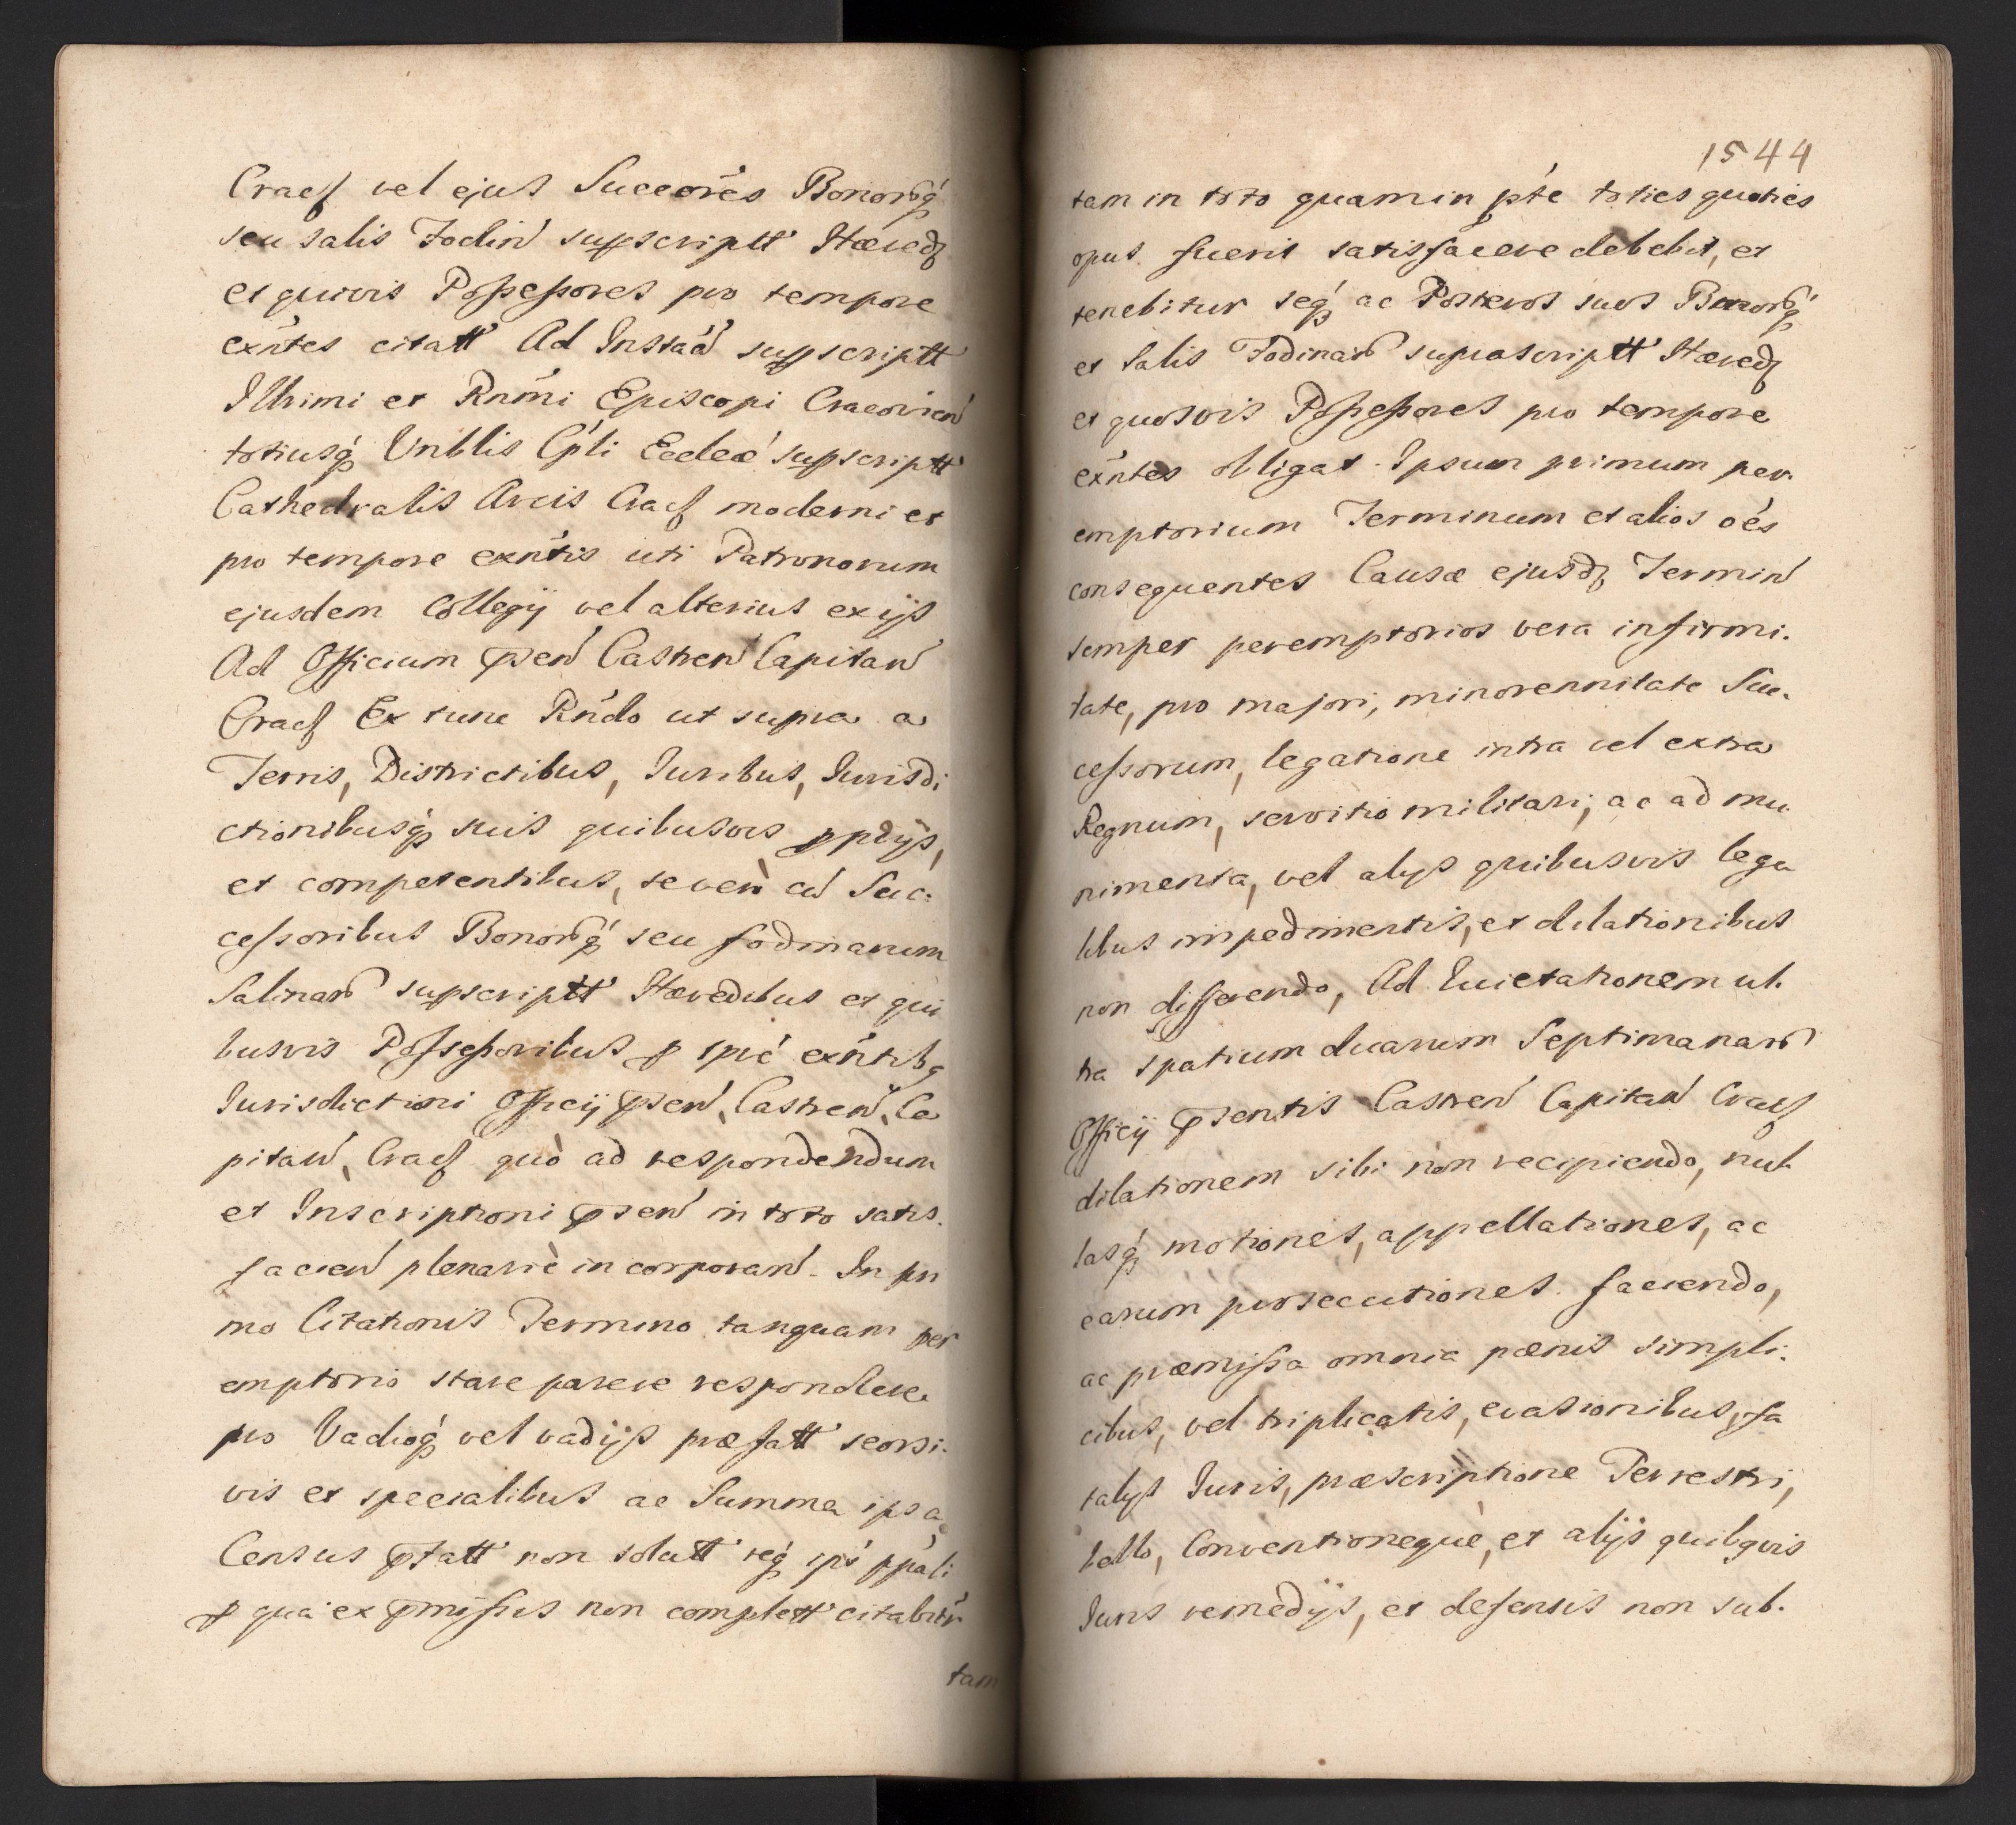 Cracſ vel ejus Succōres Bonorq́
seu salis Fodin̄ supscriptt Hæredꝫ
et quivis Poſseſsores pro tempore
exn̄tes citatt Ad Instaā supscriptt
Illrimi et Rn̄mi Episcopi Cracovien̄
totiusq́ Vnblis Cṕli Eccleæ supscriptt
Cathedralis Arcis Cracſ moderni et
pro tempore exn̄tis uti Patronorum
ejusdem Collegij vel alterius ex ijs
Ad Officium p̄sen̄ Castren̄ Capitan̄
Cracſ Ex tunc Rn̄do ut supra a
Terris, Districtibus, Iuribus, Iurisdi
ctionibusq́ suis quibusvis ppriys,
et competentibus, se verò cū Suc-
ceſsoribus Bonorq́ seu fodinarum
Salinarꝫ supscriptt Hæredibus et qui
busvis Poſseſsoribus p tpré exn̄tibꝫ
Iurisdictioni Officij p̄sen̄, Castren̄, Ca
pitan̄, Cracſ quò ad respondendum
et Inscriptioni p̄sen̄ in toto satis-
facien̄ plenariè incorporan̄. In pri
mo Citationis Termino tanquam per
emptorio stare parere respondere
pro Vadioq́ vel vadijs præfatt seorsi-
vis et specialibus ac Summa ipsa
Census p̄fatt non solutt req́ ipś ppāli
p qua ex p̄miſsis non complett citabitr̄
tam
1544
tam in toto quam in pt́e toties quoties
opus fuerit satisfacere debebit, et
tenebitur seq́ ac Posteros suos Bonorq́
et Salis Fodinarꝫ suprascriptt Hæredꝫ
et quosvis Poſseſsores pro tempore
exn̄tes obligat. Ipsum primum per-
emptorium Terminum et alios oēs
consequentes Causæ ejusdꝫ Termin̄
semper peremptorios vera infirmi-
tate, pro majori, minorennitate Suc-
ceſsorum, legatione intra vel extra
Regnum, servitio militari, ac ad mu
nimenta, vel alijs quibusvis lega
libus impedimentis, et dilationibus
non differendo, Ad Quietationem ul-
tra spatium duarum Septimanarꝫ
Officij p̄sentis Castren̄ Capitan̄ Cracſ
dilationem sibi non recipiendo, nul-
lasq́ motiones, appellationes, ac
earum prosecutiones faciendo,
ac præmiſsa omnia pœnis simpli-
cibus, vel triplicatis, evasionibus, fa
talijs Iuris, præscriptione Terrestri,
bello, Conventioneque, et alijs quibꝫvis
Iuris remedijs, et defensis non sub-